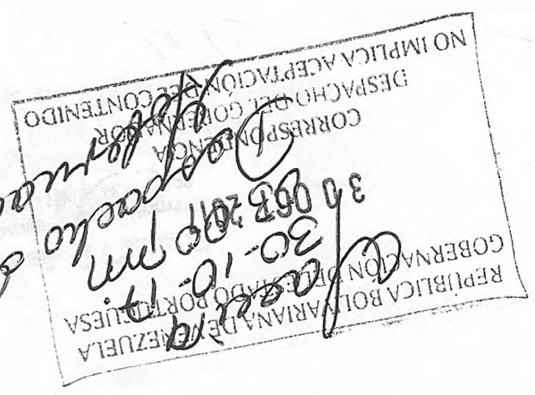 REPÚBLICA BOLIVARIANA DE VENEZUELA
GOBERNACIÓN DEL ESTADO PORTUGUESA
CORRESPONDENCIA
DESPACHO DEL GOBERNADOR
NO IMPLICA ACEPTACIÓN DEL CONTENIDO
30-10-17.
pm
Despacho